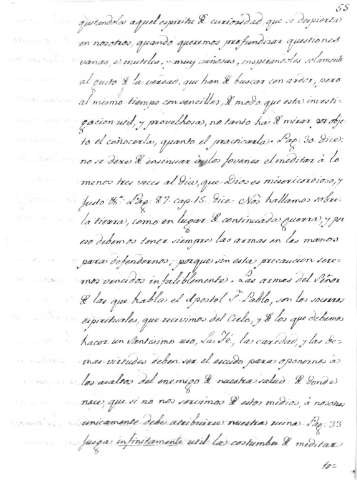 55
gustandola aquel espiritu de curiosidad que se despierta
en nosotros, quando queremos profundizar questiones
vanas, e inutiles, muy curiosas, inspirenosles solamente
el gusto de la verdad, que han de buscar con ardor, pero
al mismo tiempo con sencillez, de modo que esta investi-
gacion util, y provechosa, no tanto ha de mirar
to el conocerla, quanto el practicarla. Pag. 30. dice:
no se dexe de insinuar a los jovenes el meditar à lo
menos tres veces al dia, que Dios es misericordioso, y
Justo &. Pag. 87. cap. 15. dice: Nos hallamos sobre
la tierra, como en lugar de continuada guerra, y por
eso debemos tener siempre las armas en las manos
para defendernos, porque sin esta precaucion sere-
mos vencidos infaliblemente. Las armas del Señor
de las que habla el Apostol S. Pablo, son los socorros
espirituales, que recivimos del Cielo, y de los que debemos
hacer un Santisimo uso, La Fé, la caridad, y las de-
mas virtudes deben ser el escudo para oponernos à
los asaltos del enemigo de nuestra salud. De donde
nace, que si no nos servimos de estos medios, à nosotros
unicamente debe atribuirse nuestra ruina. Pag. 33
Juzga infinitamente util la costumbre de meditar
to=